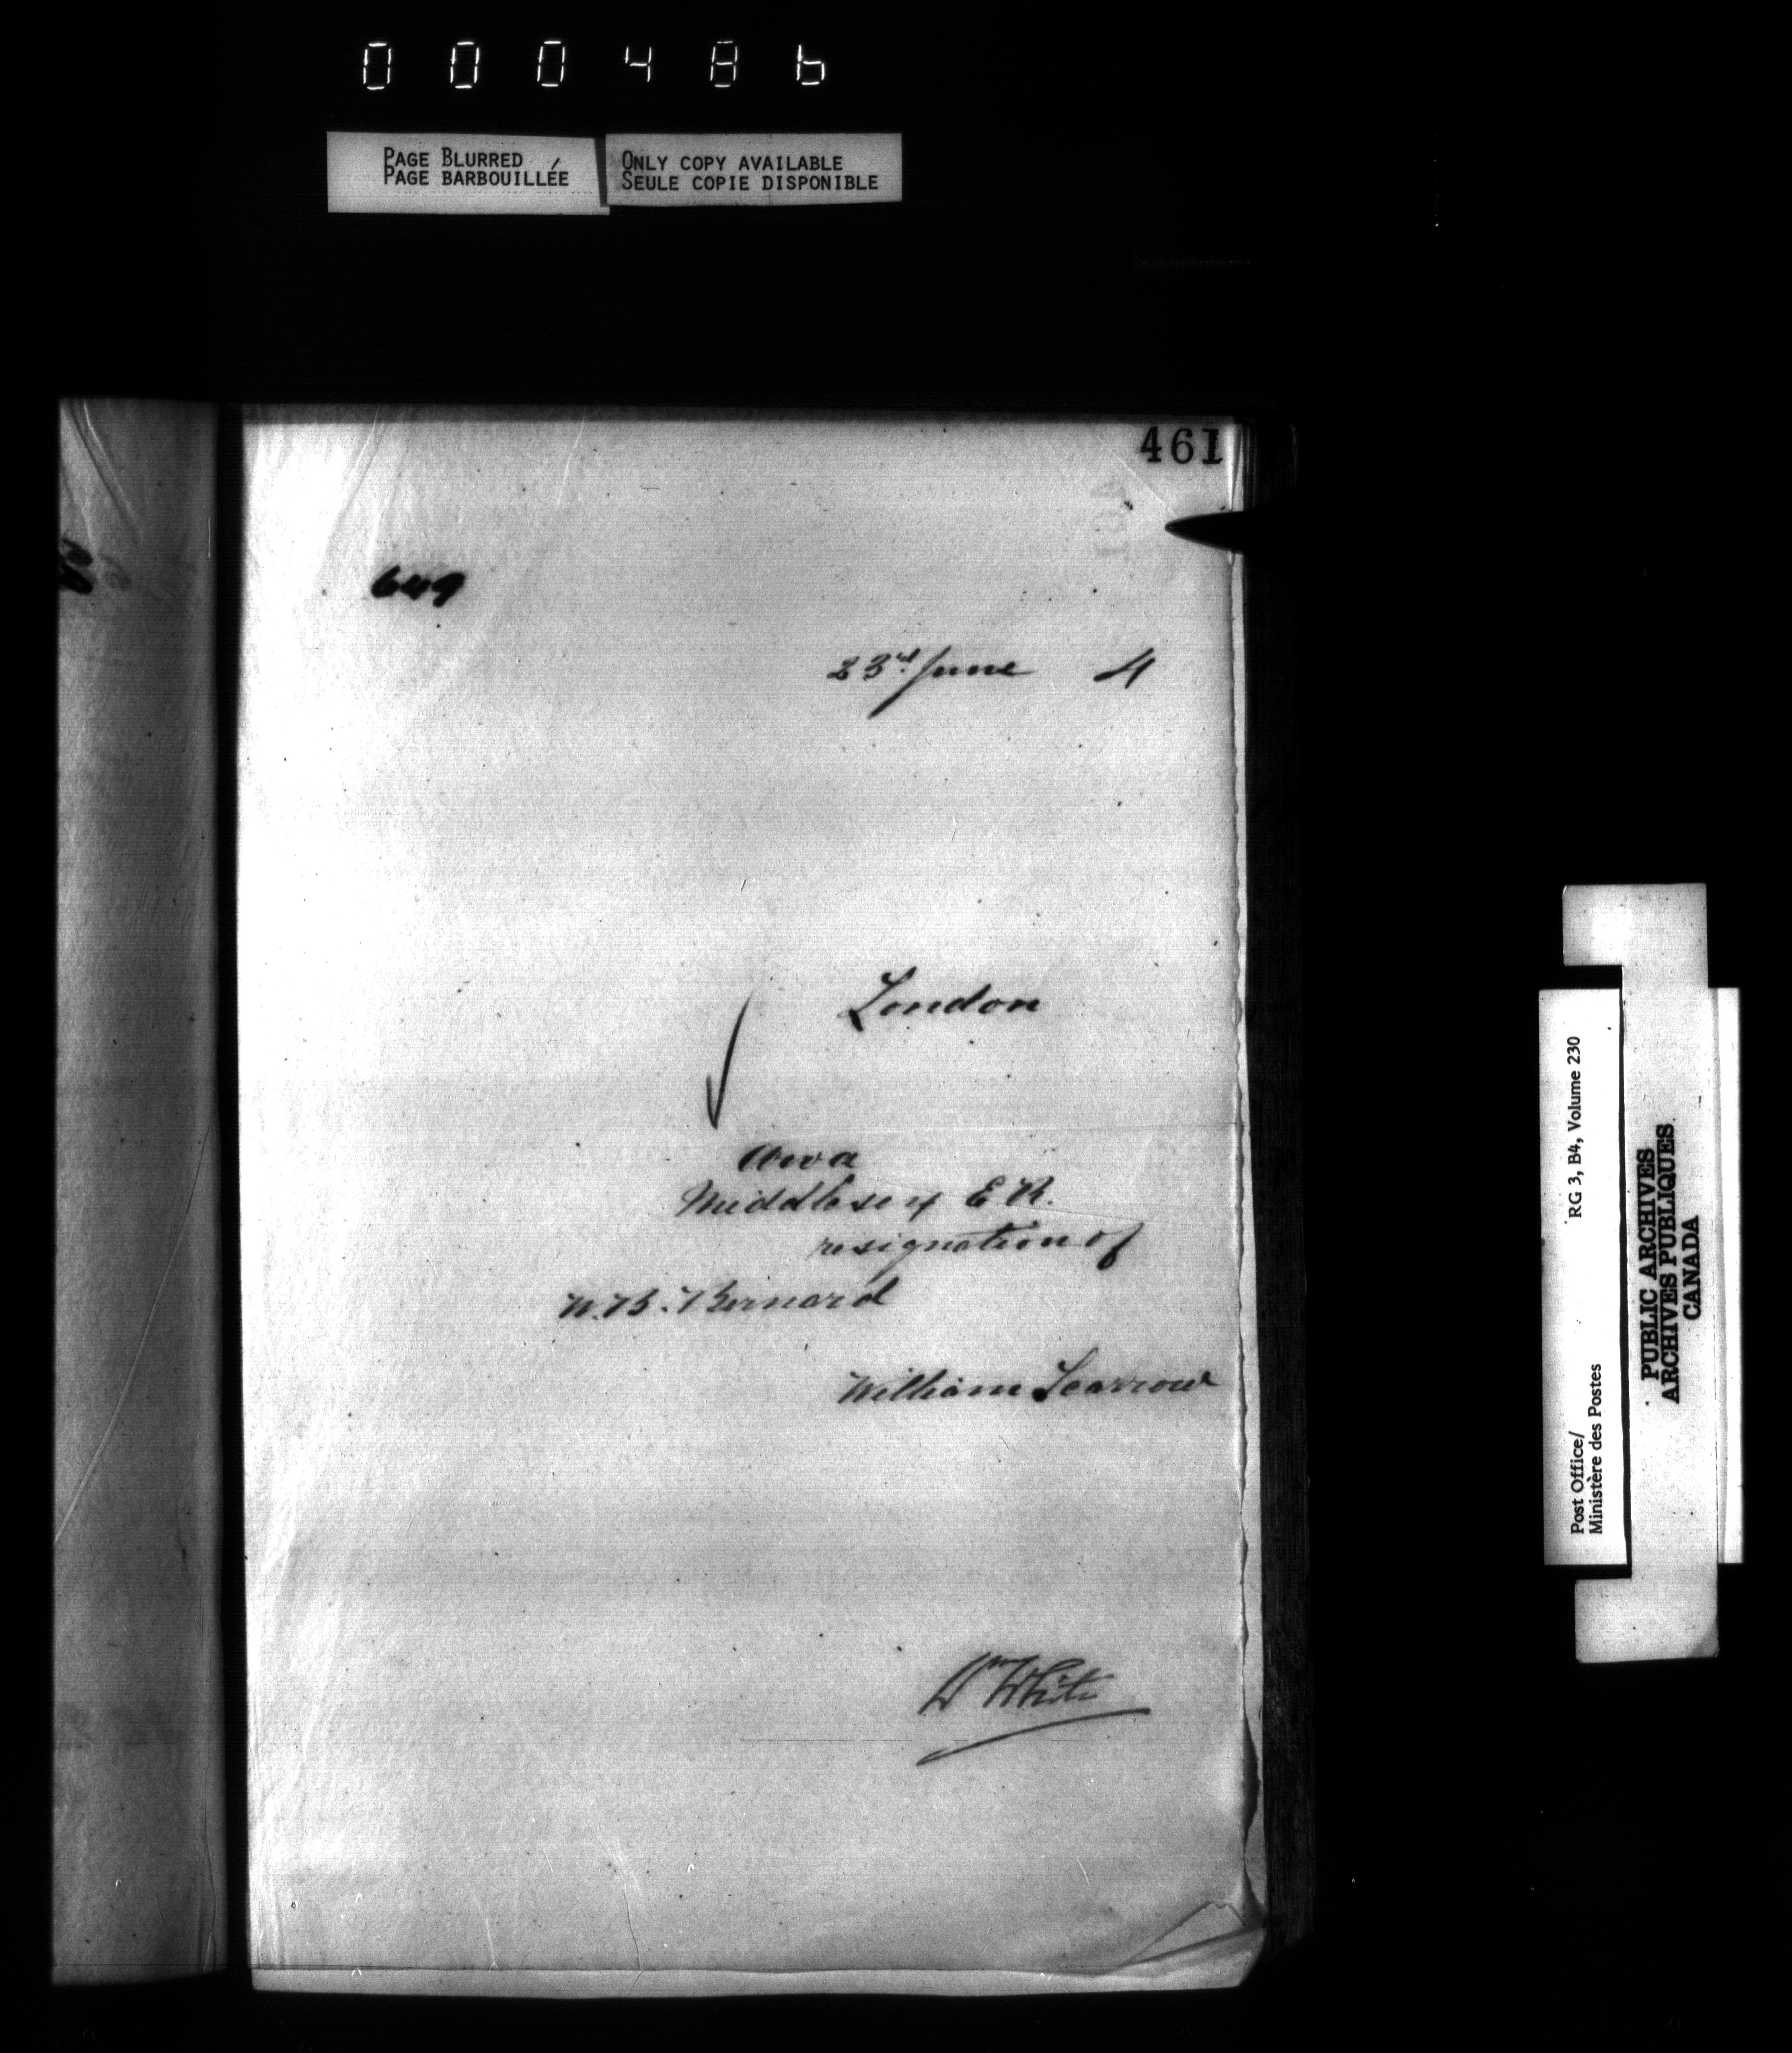 000486
PAGE BLURRED
PAGE BARBOUILLÉE
ONLY COPY AVAILABLE
SEULE COPIE DISPONIBLE
461
649
23rd June 4
London
Arva
Middlesex E R.
resignation of
W. B. Bernard
William Scarrow
Wm White
RG 3, B4, Volume 230
Post Office/
Ministère des Postes
PUBLIC ARCHIVES
ARCHIVES PUBLIQUES
CANADA